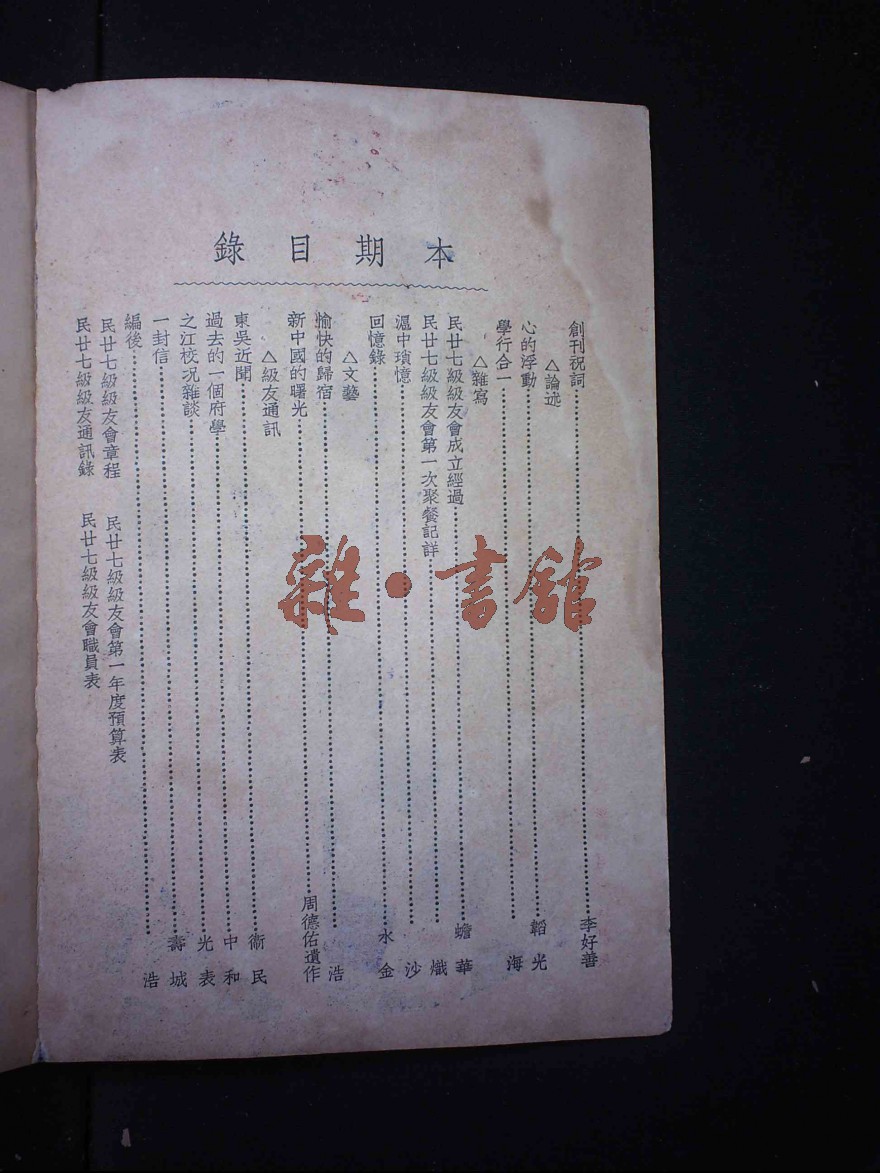 本期目錄
創刊祝詞 李好善
△論述
心的浮動 韜光
學行合一 海
△雜寫
民廿七級級友會成立經過 蟾華
民廿七級級友會第一次聚餐記詳 熾
滬中瑣憶 沙
回憶錄 水金
△文藝
愉快的歸宿 浩
新中國的曙光 周德佑遺作
△級友通訊
東吳近聞 衞民
過去的一個府學 中和
之江校况雜談 光表
一封信 壽城
編後 浩
民廿七級級友會章程 民廿七級級友會第一年度預算表
民廿七級級友通訊錄 民廿七級級友會職員表
雜·書館